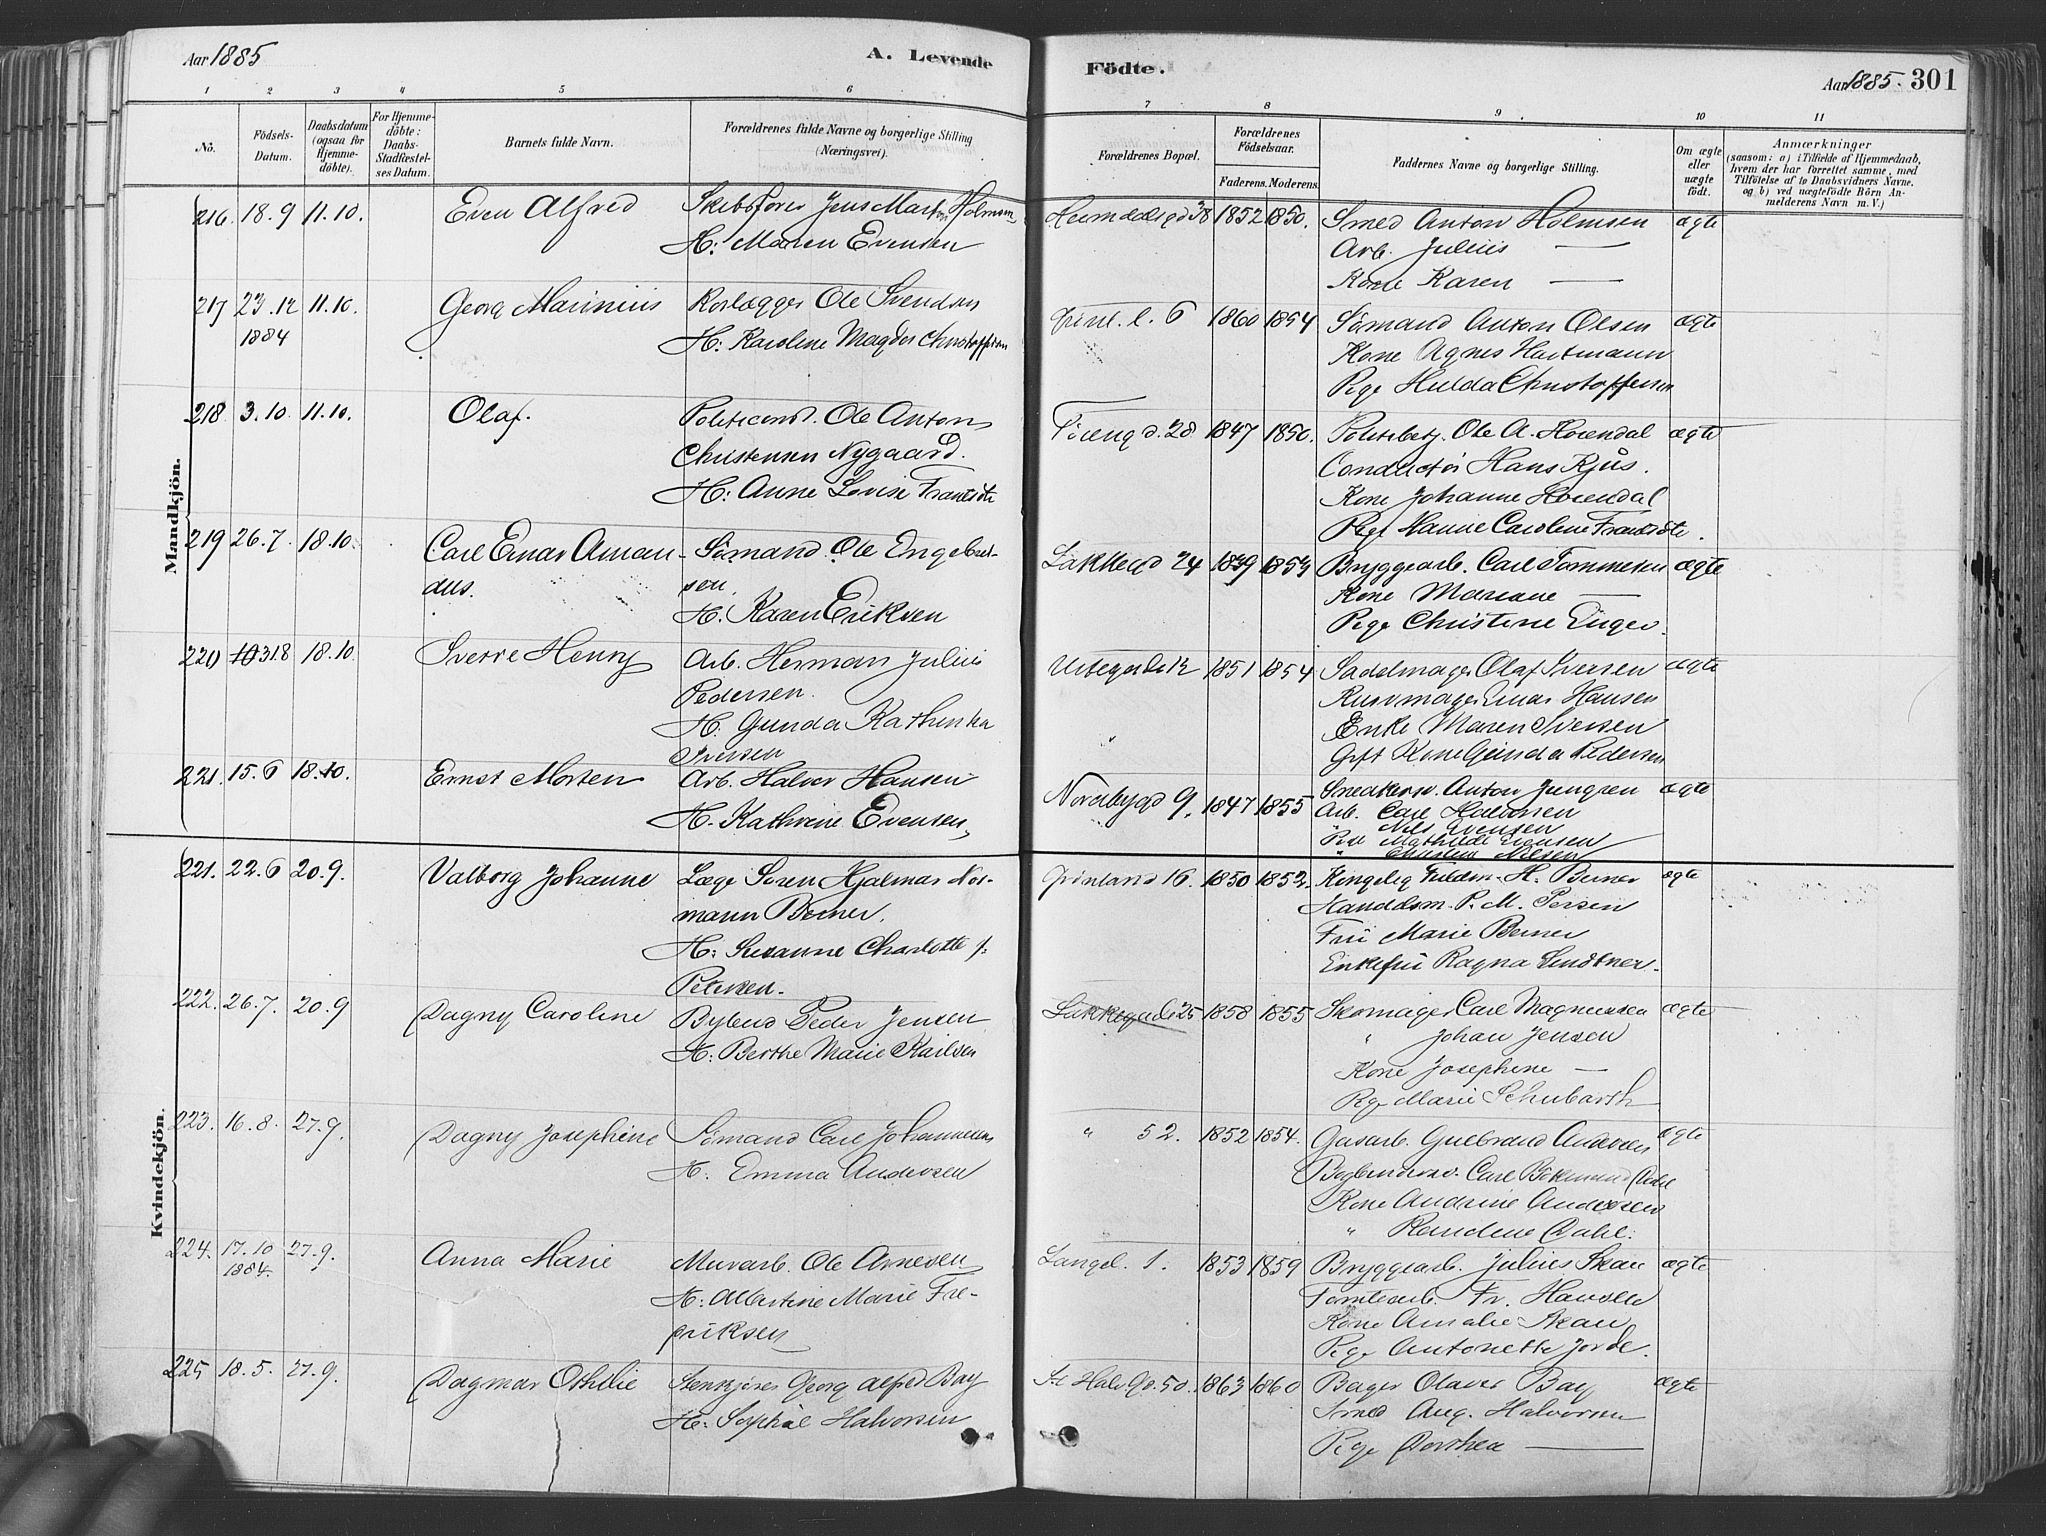 Aar 1885
A. Levende
Födte.
Aar 1885. 301
1 2 3 4 5 6 7 8 9 10 11
No.
Födsels-
Datum.
Daabsdatum
(ogsaa for
Hjemme-
döbte).
For Hjemme-
döbte:
Daabs-
Stadfæstel-
ses Datum.
Barnets fulde Navn.
Forældrenes fulde Navne og borgerlige Stilling
(Næringsvei).
Forældrenes Bopæl.
Forældrenes
Födselsaar.
Faderens. Moderens.
Faddernes Navne og borgerlige Stilling.
Om ægte
eller
uægte
födt.
Anmærkninger
(saasom: a) i Tilfælde af Hjemmedaab,
hvem der har forrettet samme, med
Tilföielse af to Daabsvidners Navne.
og b) ved uægtefödte Börn An-
melderens Navn m. V.)
Mandkjön.
216. 18.9 11.10. Even Alfred
Skibsfører Jens Martin Holmsen
H: Maren Evensen
Heimdalsgd 38 1852 1850.
Smed Anton Holmsen
Arb. Julius —
Kone Karen —
ægte
217 23.12
1884
11.10. Georg Marinius
Rørlægger Ole Svendsen
H: Karoline Magda Christoffersen
Grønl. l. 6 1860 1854
Sømand Anton Olsen
Kone Agnes Hartmann
Pige Hulda Christoffersen
ægte
218 3.10. 11.10. Olaf.
Politiconst. Ole Anton
Christensen Nygaard.
H: Anne Lovise
28 1847 1850.
Politibetj. Ole A. Horendal
Conductør Hans Kjus.
Kone Johanne Horendal
Pige Hanne Caroline
ægte
219 26.7. 18.10. Carl Einar Aman-
dus.
Sømand Ole Engebret-
sen.
H. Karen Eriksen
Lakkegd 24 1839 1854
Bryggearb. Carl Tommesen
Kone Mariane —
Pige Christine Unger.
ægte
220 10 31.8 18.10. Sverre Henry
Arb. Herman Julius
Pedersen.
H. Gunda Kathinka
Iversen
Urtegade 12 1851 1854
Sadelmager Olaf Iversen
Kurvmager Einar Hansen
Enke Maren Iversen
Gift Kone Gunda Pedersen
ægte
221. 15.6 18.10. Ernst Morten
Arb. Halvor Hansen
H. Kathrine Evensen,
Nordbygd 9. 1847 1855
Snedkersv. Anton Jungren
Arb. Carl Halvorsen
" Nils Evensen
Pige Mathilde Evensen
" Christine Nilsen
ægte
Kvindekjön.
221. 22.6 20.9. Valborg Johanne
Læge Søren Hjalmar Nor-
mann Berner.
H: Susanne Charlotte f:
Petersen.
Grønland 16. 1850 1852
Kongelig Fuldm. H. Berner
Handelsm. P. M. Persen
Fru Marie Berner
Enkefru Ragna Lindtner.
ægte
222. 26.7. 20.9 Dagny Caroline
Bybud Peder Jensen
H: Berthe Marie Karlsen
Lakkegade 25 1858 1855
Skomager Carl Magnussen
" Johan Jensen
Kone Josephine —
Pige Marie Schubarth
ægte
223. 16.8. 27.9. Dagny Josephine
Sømand Carl Johannesen
H. Emma Andersen
" 52. 1852 1854.
Gasarb. Gulbrand Andersen
Carl Dahl
Kone Andrine Andersen
" Dahl.
ægte
224. 17.10
1884.
27.9. Anna Marie
Murarb. Ole Arnesen
H: Albertine Marie Fre-
driksen
Langel. 1. 1853 1859
Bryggearb. Julius Skau
Tomtearb. Fr. Hansen
Kone Amalie Skau
Pige Antonette Jorde.
ægte
225 18.5. 27.9. Dagmar Othilie
Stenkjører Georg Alfred Bay
H: Sophie Halvorsen
St. Halv. Gd. 50. 1863 1860
Bager Olaves Bay
Smed Aug. Halvorsen
Pige Dorthea —
ægte